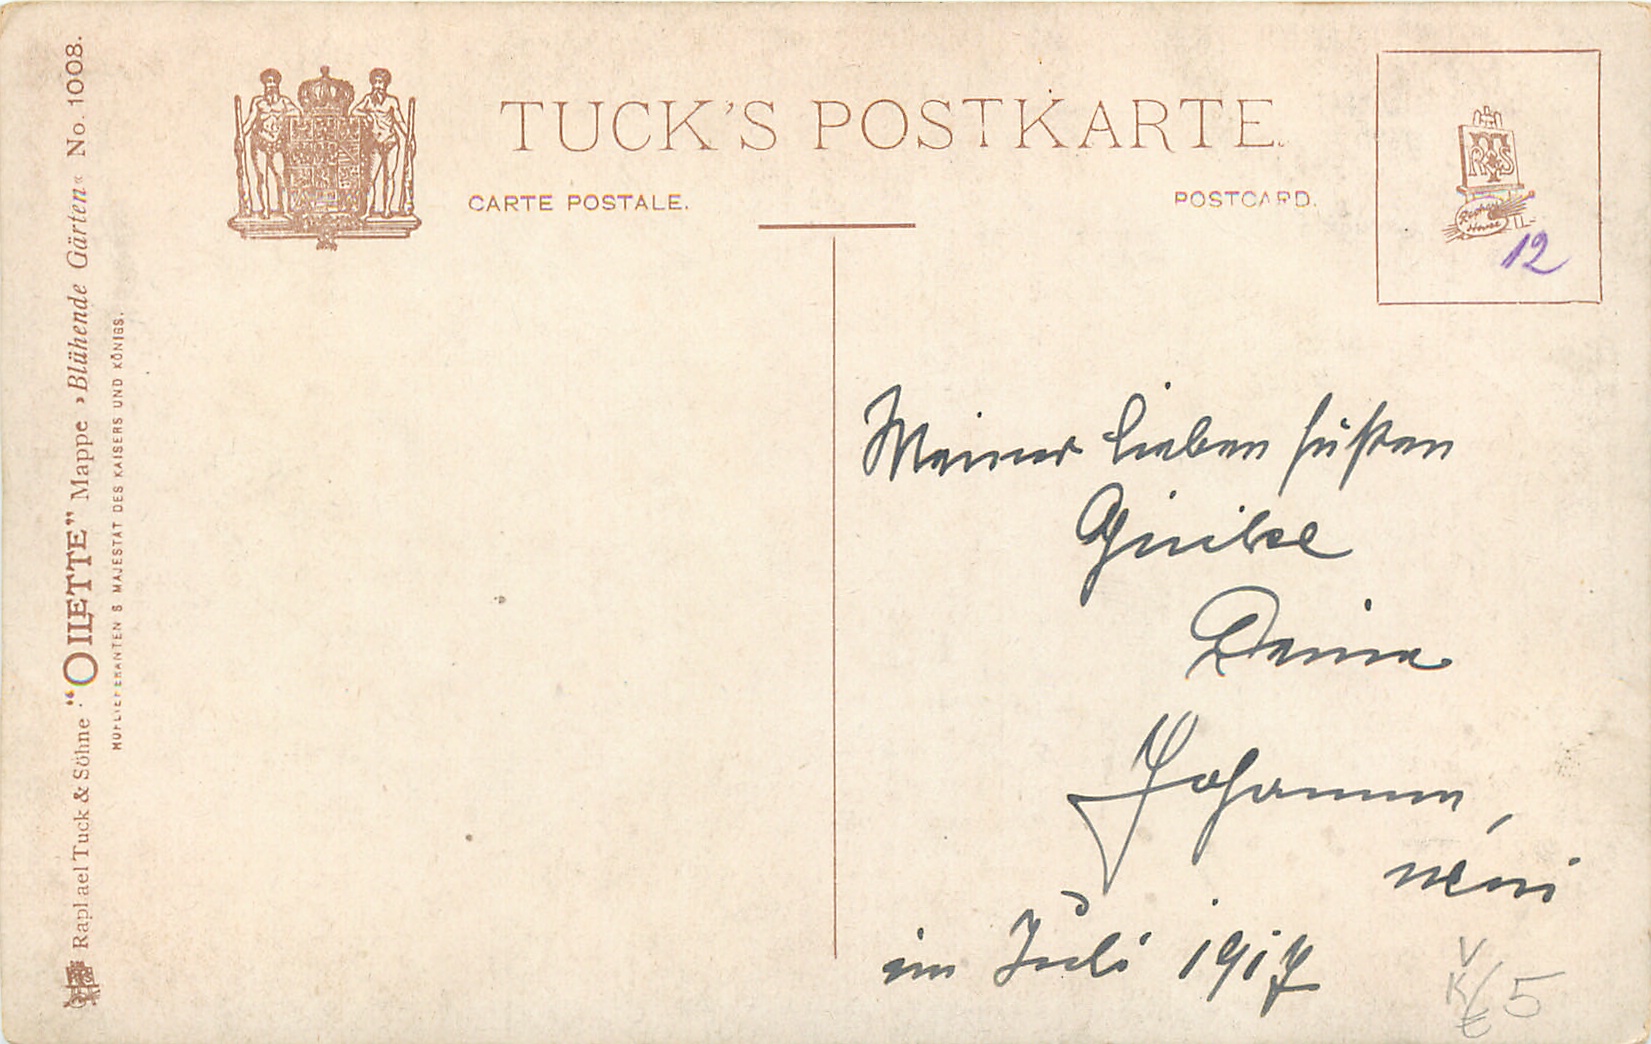 TUCK'S POSTKARTE.
CARTE POSTALE.
POSTCARD.
RTS
Raphael
House
12
Raphael Tuck & Söhne "OILETTE" Mappe ›Blühende Gärten« No. 1008.
HOFLIEFERANTEN Sr MAJESTÄT DES KAISERS UND KÖNIGS.
Meiner lieben süßen
Deine
im Juli 1917
V
K/5
€